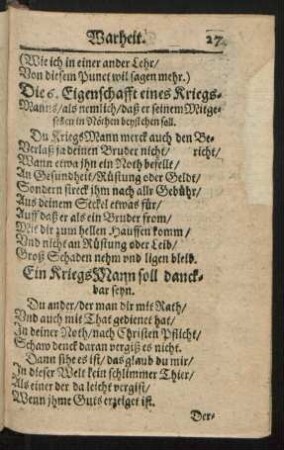 Warheit. 27.
(Wie ich in einer ander Lehr/
Von diesem Punct wil sagen mehr.)
Die 6. Eigenschafft eines Kriegs-
Manns/als nemlich/daß er seinem Mitge-
sellen in Nöhten beystehen soll.
Du KriegsMann merck auch den Be-
Verlaß ja deinen Bruder nicht/ richt/
Wann etwa ihn ein Noth befellt/
An Gesundheit/Rüstung oder Geldt/
Sondern streck ihm nach aller Gebühr/
Aus deinem Seckel etwas für/
Auff daß er als ein Bruder from/
Mit dir zum hellen Hauffen komm/
Vnd nicht an Rüstung oder Leib/
Groß Schaden nehm vnd ligen bleib.
Ein KriegsMann soll danck-
bar seyn.
Du ander/der man dir mit Rath/
Vnd auch mit That gedienet hat/
In deiner Noth/nach Christen Pflicht/
Schaw denck daran vergiß es nicht.
Dann sihe es ist/das glaub du mir/
In dieser Welt kein schlimmer Thier/
Als einer der da leicht vergist/
Wenn jhme Guts erzeiget ist.
Der-